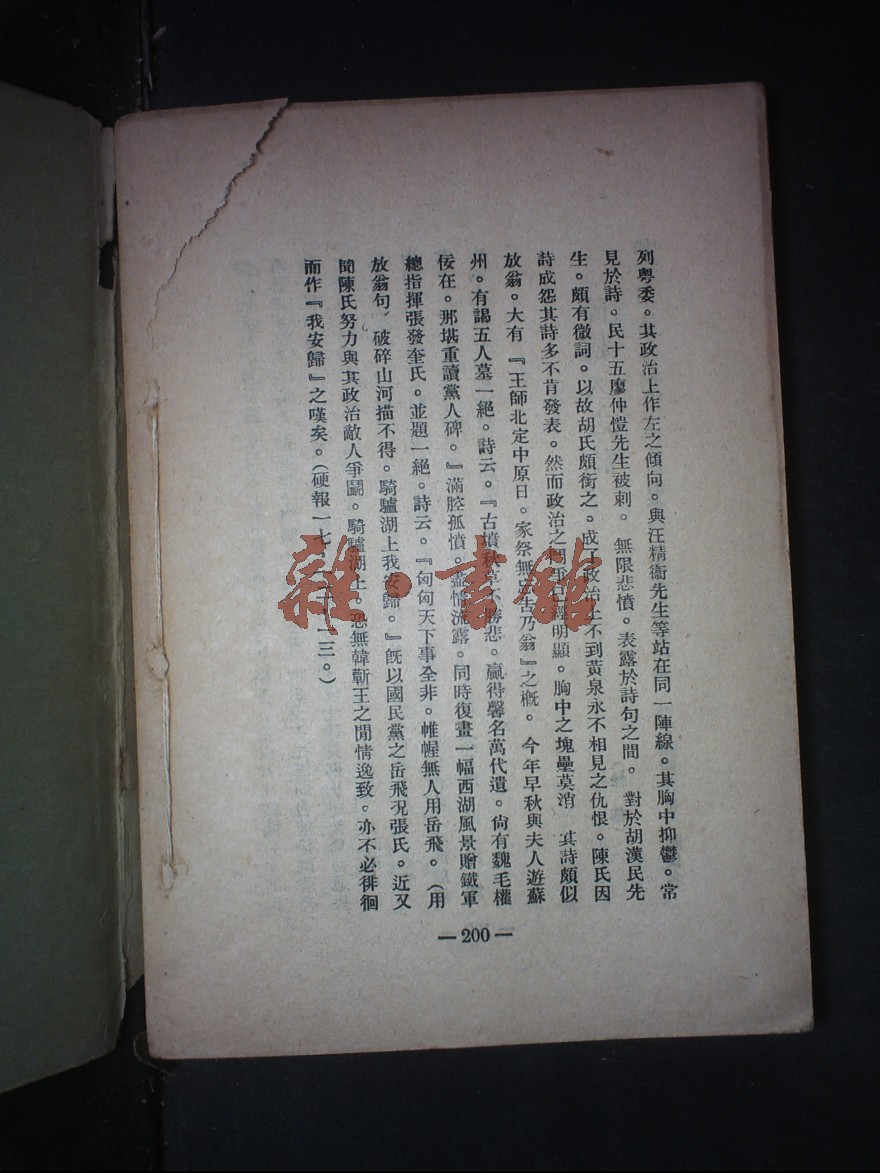 列粤委。其政治上作左之傾向。與汪精衞先生等站在同一陣線。其胸中抑鬱。常
見於詩。民十五廖仲愷先生被刺。無限悲憤。表露於詩句之間。對於胡漢民先
生。頗有微詞。以故胡氏頗銜之。成了政治上不到黃泉永不相見之仇恨。陳氏因
詩成怨其詩多不肯發表。然而政治之間却已經明顯。胸中之塊壘莫消 其詩頗似
放翁。大有『王師北定中原日。家祭無忘告乃翁』之槪。今年早秋與夫人遊蘇
州。有謁五人墓一絕。詩云。『古墳秋草不勝悲。贏得馨名萬代遺。尙有魏毛權
佞在。那堪重讀黨人碑。』滿腔孤憤。盡情流露。同時復畫一幅西湖風景贈鐵軍
總指揮張發奎氏。並題一絕。詩云。『匈匈天下事全非。帷幄無人用岳飛。(用
放翁句、破碎山河描不得。騎驢湖上我安歸。』旣以國民黨之岳飛况張氏。近又
聞陳氏努力與其政治敵人爭鬭。騎驢湖上。恐無韓蘄王之閒情逸致。亦不必徘徊
而作『我安歸』之嘆矣。(硬報一七,一三。)
—200—
雜·書館